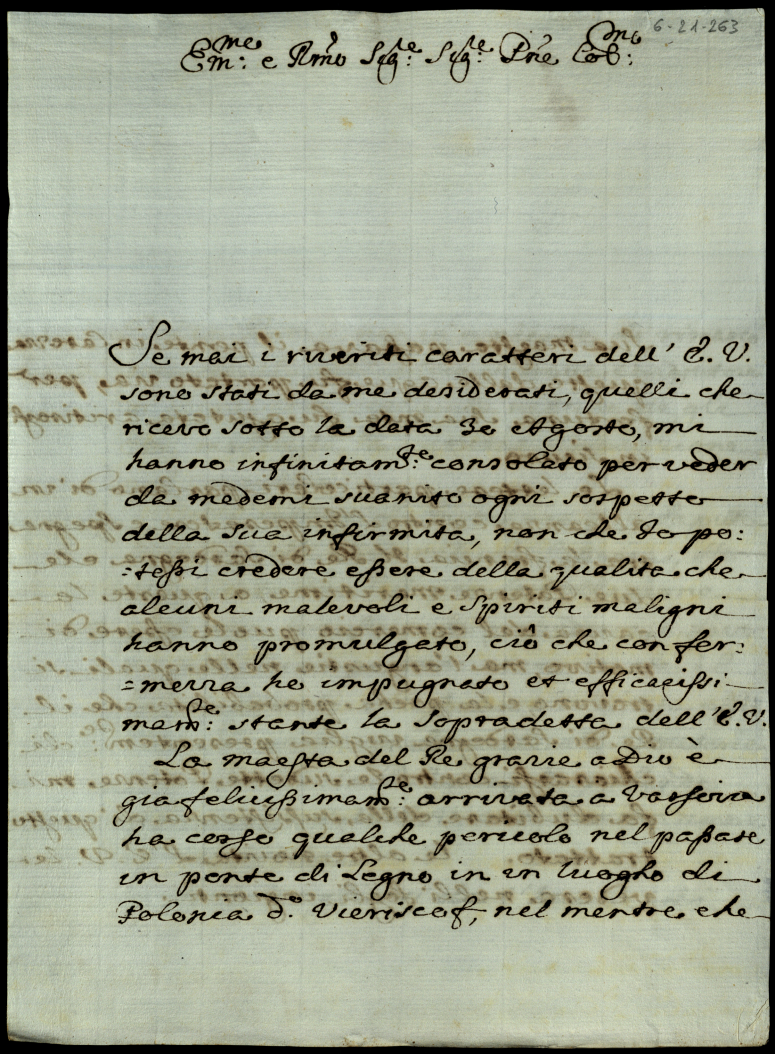 6-21-263
Em:me e Rmo Sig:re Sig:re Pne Col:mo
Se mai i riveriti caratteri dell' E. V.
sono stati da me desiderati, quelli che
ricevo sotto la data 30 Agosto, mi
hanno infinitam:te consolato per veder
da medemi suanito ogni sospetto
della sua infirmita, non che Io po:
:tessi credere essere della qualita che
alcuni malevoli e spiriti maligni
hanno promulgato, ciò che con fer:
=merza ho impugnato et efficacissi
mam:te stante la sopradetta dell' E. V.
La maesta del Re grazie a Dio è
gia felicissimam:e arrivata a Varsovia
ha corso qualche pericolo nel passare
un ponte di Legno in un luogho di
Polonia d:o Vieriscof, nel mentre che